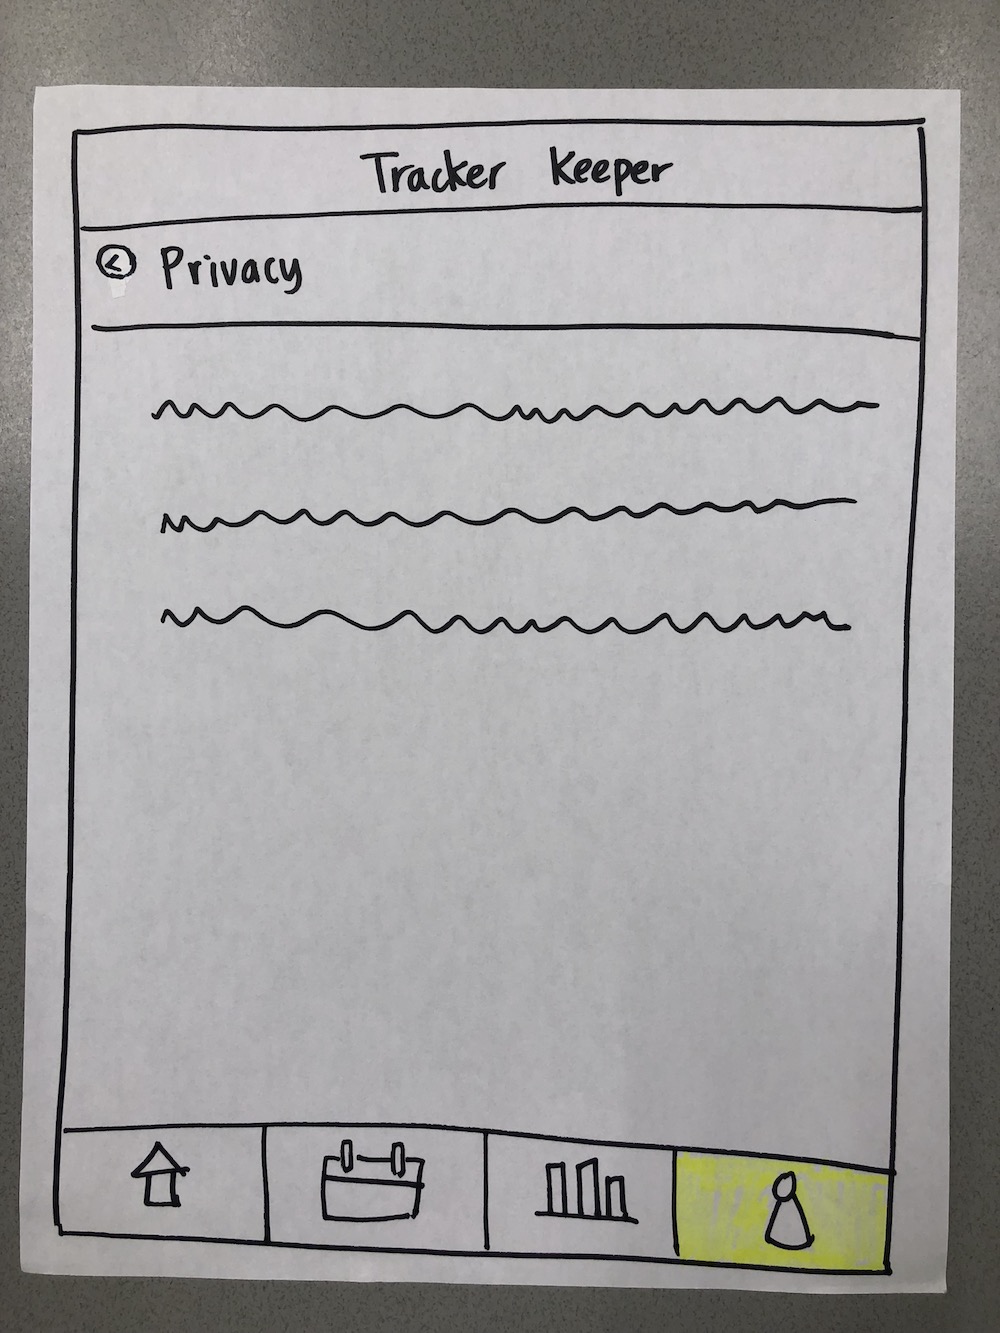 Tracker Keeper
Privacy